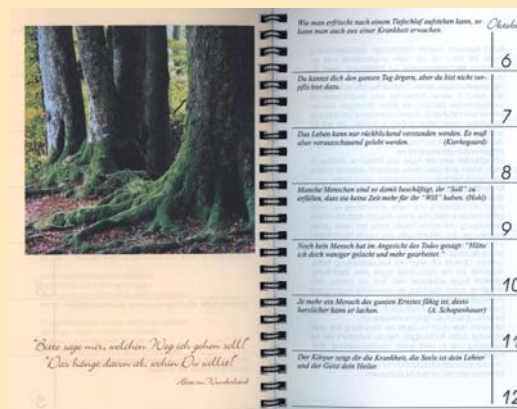 "Bitte sage mir, welchen Weg ich gehen soll?"
"Das hängt davon ab, wohin Du willst!"
Alice im Wunderland
Oktober
Wie man erfrischt nach einem Tiefschlaf aufstehen kann, so
kann man auch aus einer Krankheit erwachen.
6
Du kannst dich den ganzen Tag ärgern, aber du bist nicht ver-
pflichtet dazu.
7
Das Leben kann nur rückblickend verstanden werden. Es muß
aber vorausschauend gelebt werden. (Kierkegaard)
8
Manche Menschen sind so damit beschäftigt, ihr "Soll" zu
erfüllen, dass sie keine Zeit mehr für ihr "Will" haben. (Hohl)
9
Noch kein Mensch hat im Angesicht des Todes gesagt: "Hätte
ich doch weniger gelacht und mehr gearbeitet."
10
Je mehr ein Mensch des ganzen Ernstes fähig ist, desto
herzlicher kann er lachen. (A. Schopenhauer)
11
Der Körper zeigt dir die Krankheit, die Seele ist dein Lehrer
und der Geist dein Heiler
12